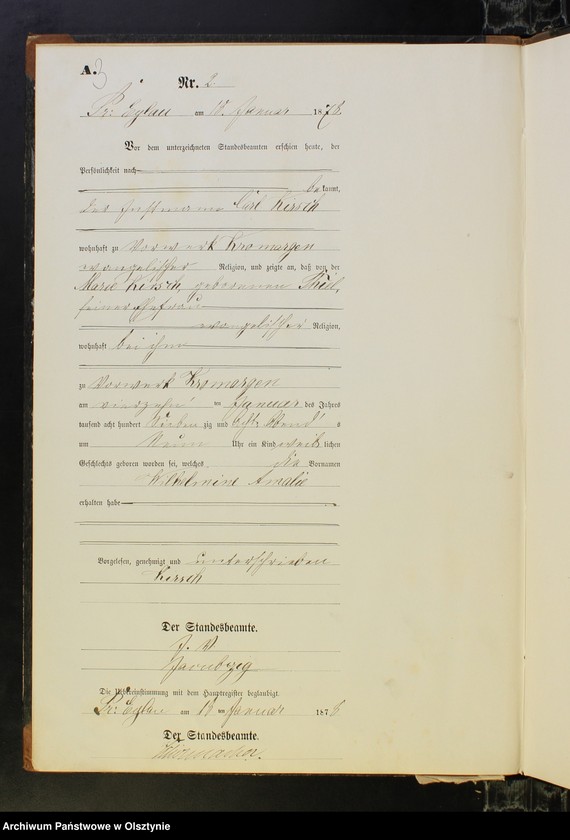 A. 3
Nr. 2.
Pr: Eylau am 18. Januar 1878.
Vor dem unterzeichneten Standesbeamten erschien heute, der
Persönlichkeit nach
bekannt,
der Instmann Carl Kirsch
wohnhaft zu Vorwerk Kromargen
evangelischer Religion, und zeigte an, daß von der
Marie Kirsch, geborenen Thiel,
seiner Ehefrau
evangelischer Religion,
wohnhaft bei ihm
zu Vorwerk Kromargen
am vierzehn ten Januar des Jahres
tausend acht hundert sieben zig und acht Abends
um Neun Uhr ein Kind weiblichen
Geschlechts geboren worden sei, welches die Vornamen
Wilhelmine Amalie
erhalten habe
Vorgelesen, genehmigt und unterschrieben
Kirsch
Der Standesbeamte.
J. V.
Die Übereinstimmung mit dem Hauptregister beglaubigt.
Pr: Eylau am 18 ten Januar 1878
Der Standesbeamte.
Archiwum Państwowe w Olsztynie